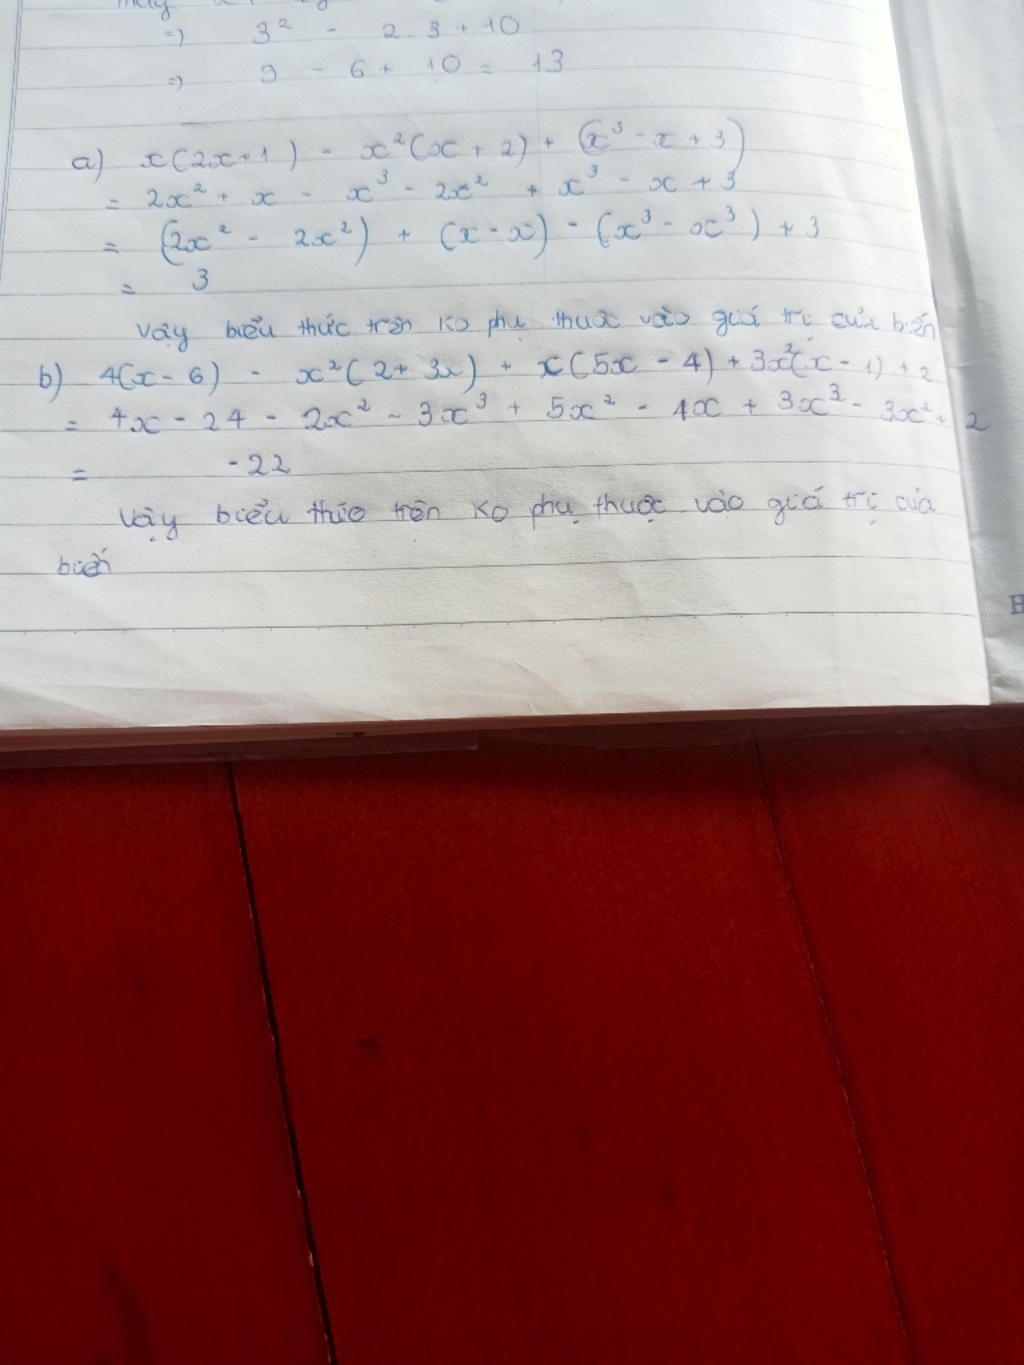 => 3² - 2.3 + 10
=> 9 - 6 + 10 = 13
a) x(2x+1) - x²(x + 2) + (x³ - x + 3)
= 2x² + x - x³ - 2x² + x³ - x + 3
= (2x² - 2x²) + (x - x) - (x³ - x³) + 3
= 3
Vậy biểu thức trên ko phụ thuộc vào giá trị của biến
b) 4(x - 6) - x²(2 + 3x) + x(5x - 4) + 3x²(x - 1) + 2
= 4x - 24 - 2x² - 3x³ + 5x² - 4x + 3x³ - 3x² + 2
= -22
Vậy biểu thức trên ko phụ thuộc vào giá trị của
biến
H